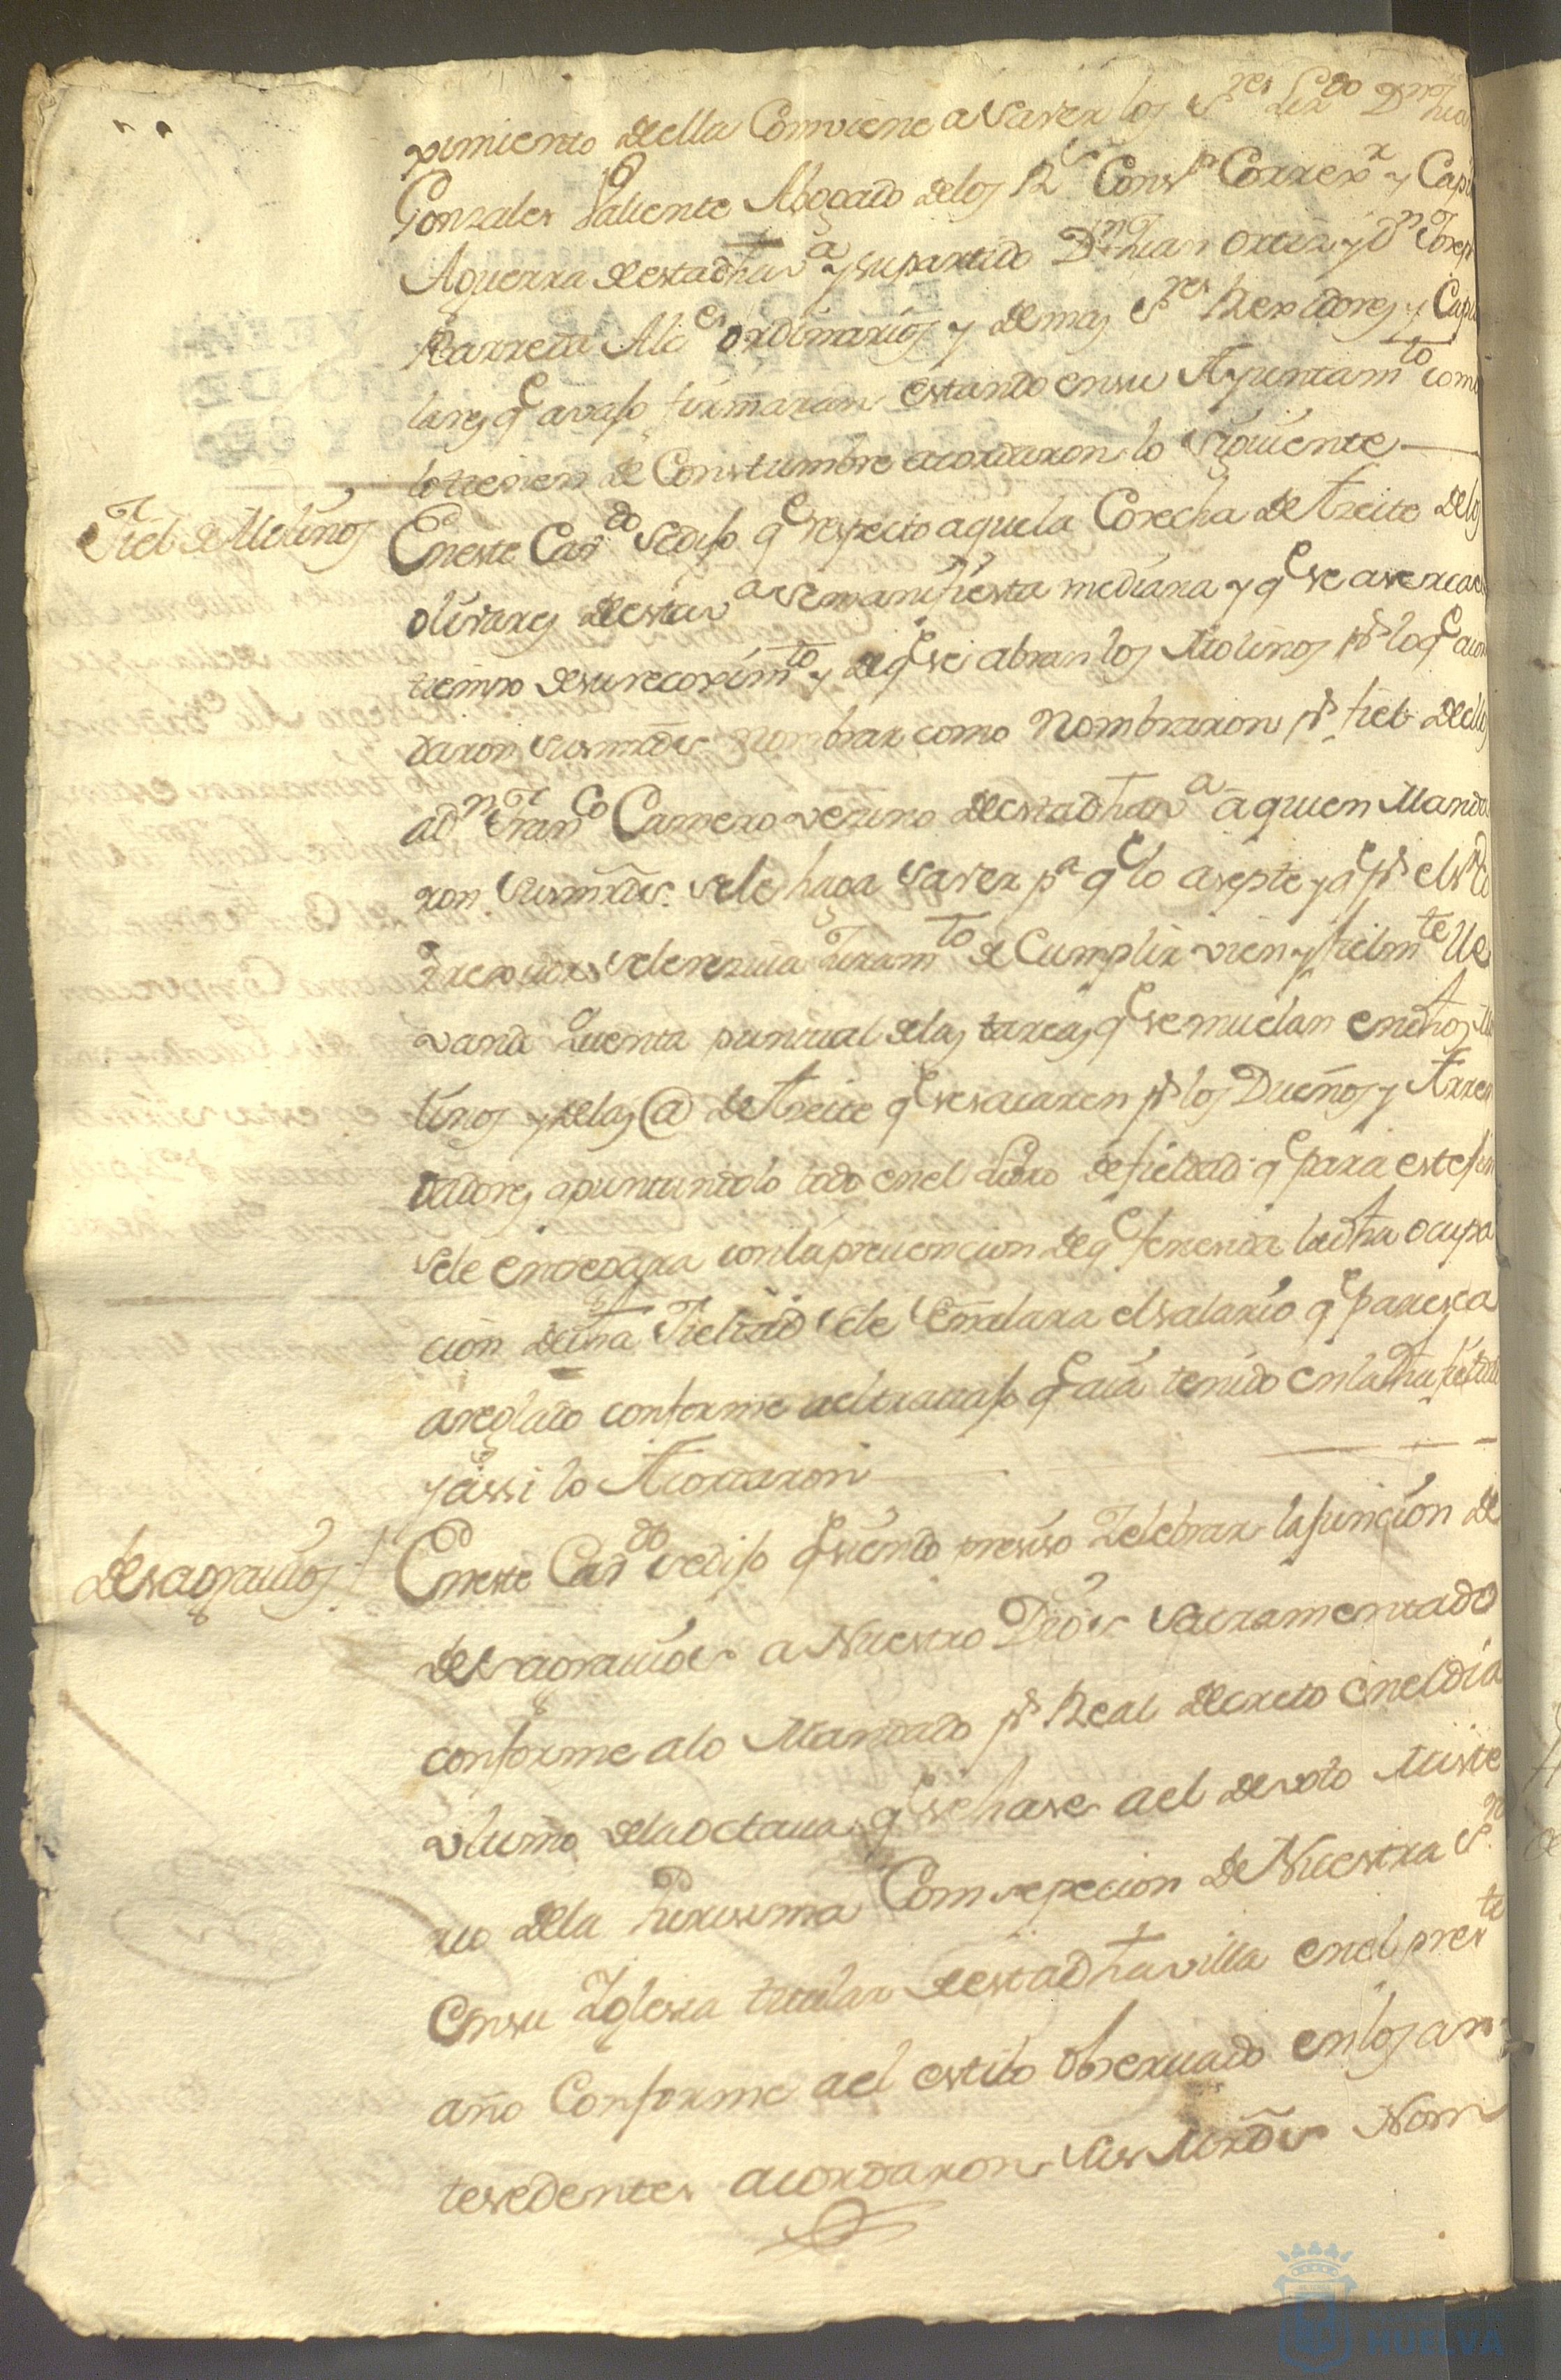 ximiento della Comviene a Saver los Sres Lizdo Dn Juan
Gonzales Valiente Abogado de los Rs Consos Correxr y Capn
Aguerra de esta dha va y su partido Dn Juan Ortiz y Dn Joseph
Barreda Alces ordinarios y demas Sres Rexidores y Capitu
lares qe avajo firmaran estando en su Ayuntamto como
lo tienen de Constumbre acordaron lo Siguiente
Fiel de Molinos
En este Cavdo Se dijo qe respecto a que la Cosecha de Azeite de los
olivares de esta va se manifiesta mediana y qe se aserca el
tiempo de su recoximto y de qe se abran los Molinos pr lo qe acor
daron Sus mrds nombrar como Nombraron pr fiel dellos
a Dn Franco Camero vezino de esta dha va a quien Manda
ron Sus mrds. se le haga Saver pa qe lo asepte y qe pr el
se le reziva Juramto de Cumplir vien y fielmte lle
vando Quenta puntual de las tareas qe se muelan en dhos Mo
linos y de las @ de Azeite qe se sacaren pr los Dueños y Arren
dadores apuntandolo todo en el Libro de fieldad qe para este fin
se le entregara con la prevencion de qe fenesida la dha ocupa
cion de dha Fieldad se le Señalara el salario qe paresca
areglado conforme a el travajo qe aia tenido en la dha fieldad
y assi lo Acordaron
desagravios
En este Cavdo se dijo qe siendo presiso Zelebrar la funcion de
desagravios a Nuestro Dios Sacramentado
conforme a lo Mandado pr Real decreto en el dia
vltimo de la octava qe se hase a el devoto Miste
rio de la Purissima Comsepcion de Nuestra Sra
en su Yglesia titular de esta dha villa en el preste
año Conforme a el estilo observado en los an
tesedentes acordaron Sus Mrds Nom
HUELVA